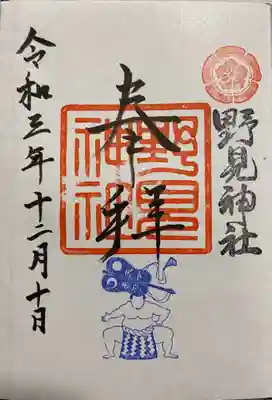 野見神社
奉拝
野見神社
令和三年十二月十日